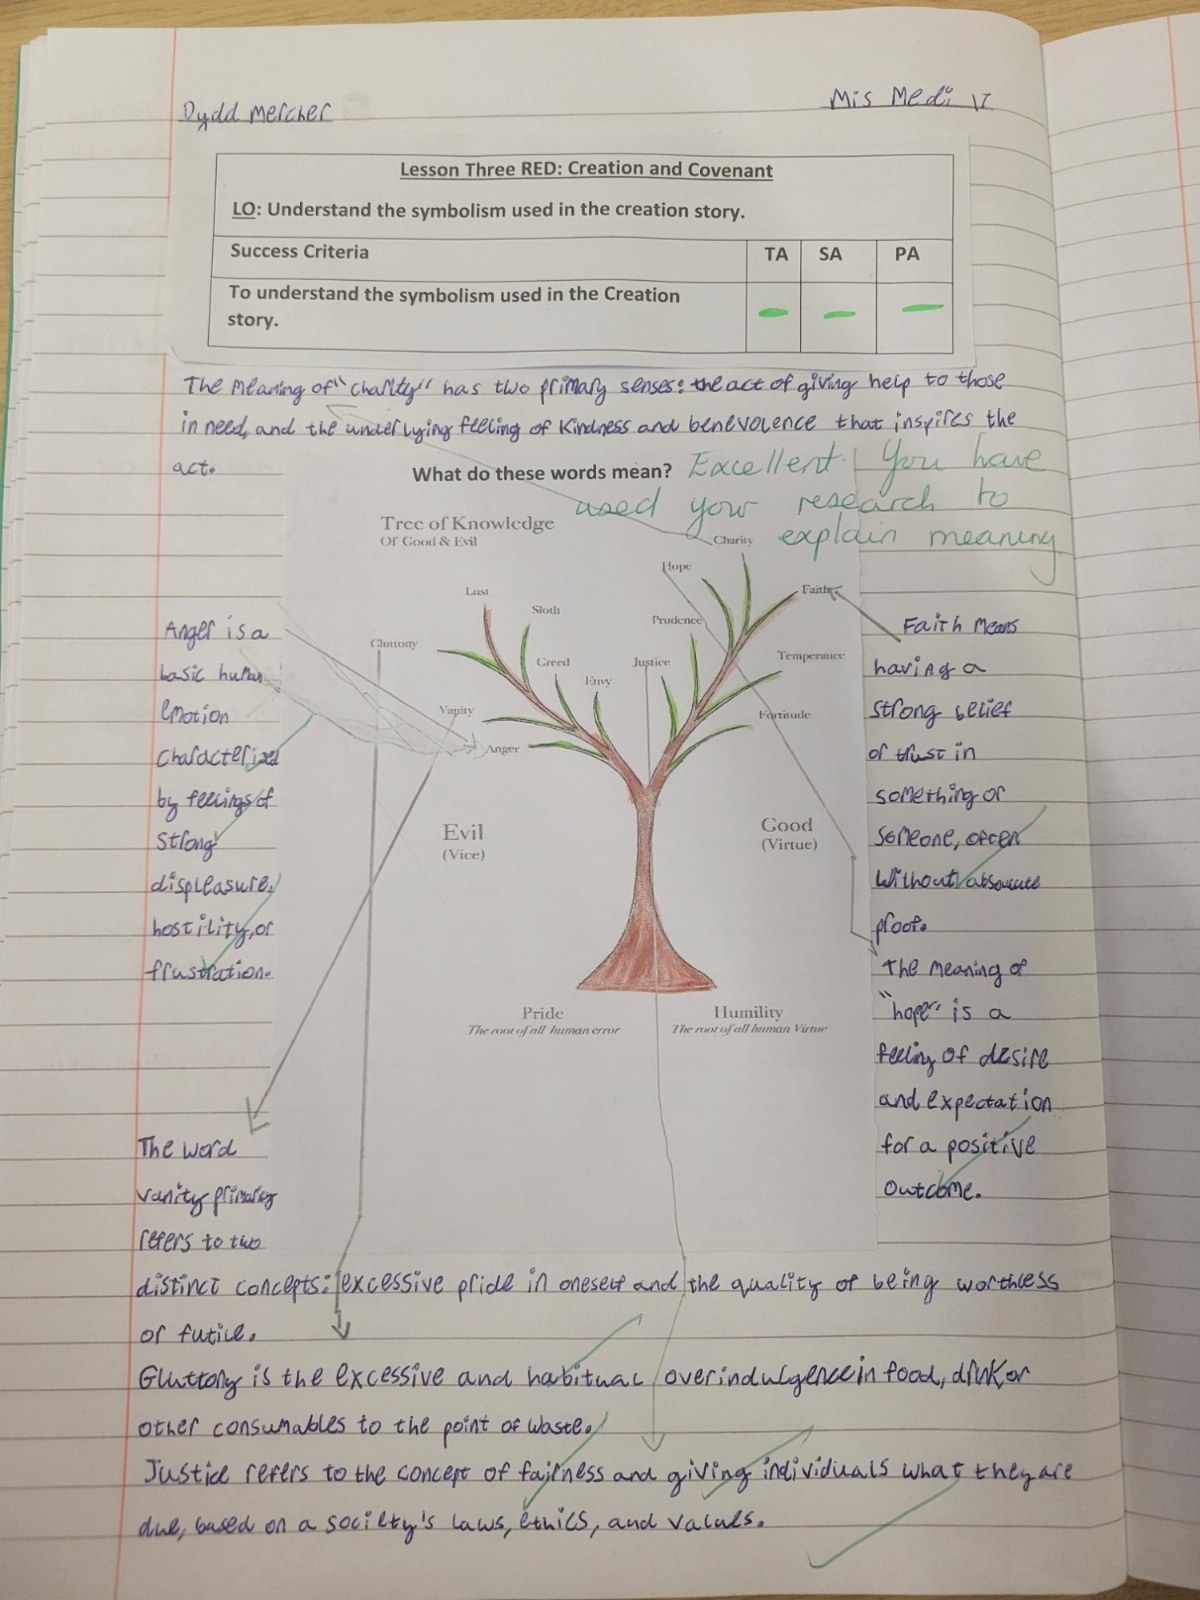 Dydd Mercher
Mis Medi 17
Lesson Three RED: Creation and Covenant
LO: Understand the symbolism used in the creation story.
Success Criteria TA SA PA
To understand the symbolism used in the Creation
story.
The meaning of "charity" has two primary senses: the act of giving help to those
in need, and the underlying feeling of kindness and benevolence that inspires the
act.
What do these words mean?
Excellent! You have
used your research to
explain meaning
Tree of Knowledge
Of Good & Evil
Charity
Hope
Faith
Lust
Sloth
Prudence
Gluttony
Greed
Justice
Temperance
Envy
Vanity
Fortitude
Anger
Evil
(Vice)
Good
(Virtue)
Pride
The root of all human error
Humility
The root of all human Virtue
Anger is a
basic human
emotion
characterized
by feelings of
strong
displeasure,
hostility, or
frustration.
Faith means
having a
strong belief
or trust in
something or
someone, often
without absolute
proof.
The meaning of
"hope" is a
feeling of desire
and expectation
for a positive
outcome.
The word
vanity primarily
refers to two
distinct concepts: excessive pride in oneself and the quality of being worthless
or futile.
Gluttony is the excessive and habitual overindulgence in food, drink or
other consumables to the point of waste.
Justice refers to the concept of fairness and giving individuals what they are
due, based on a society's laws, ethics, and values.